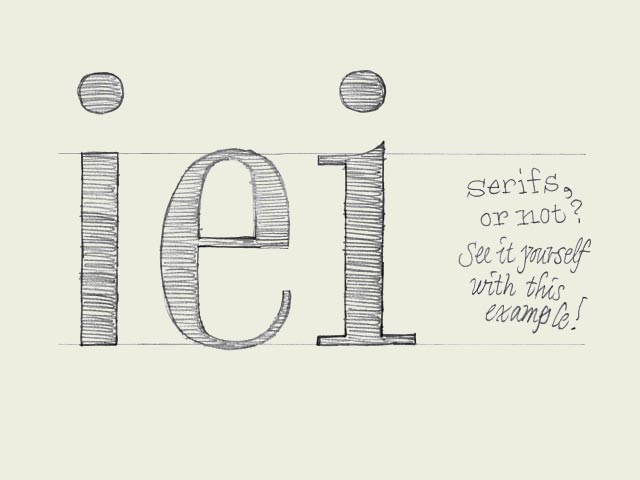 iei
serifs,
or not?
See it yourself
with this
example!